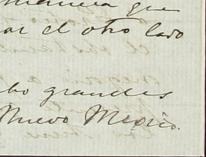 manera que
ar el otro lado
bo grandes
Nuevo Mexico.